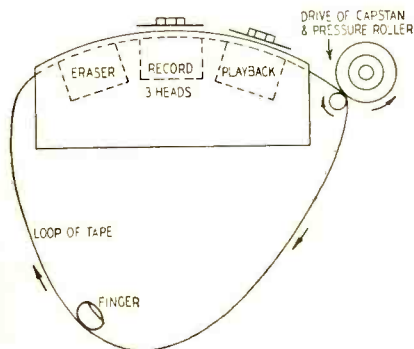 DRIVE OF CAPSTAN
& PRESSURE ROLLER
ERASER
RECORD
PLAYBACK
3 HEADS
LOOP OF TAPE
FINGER